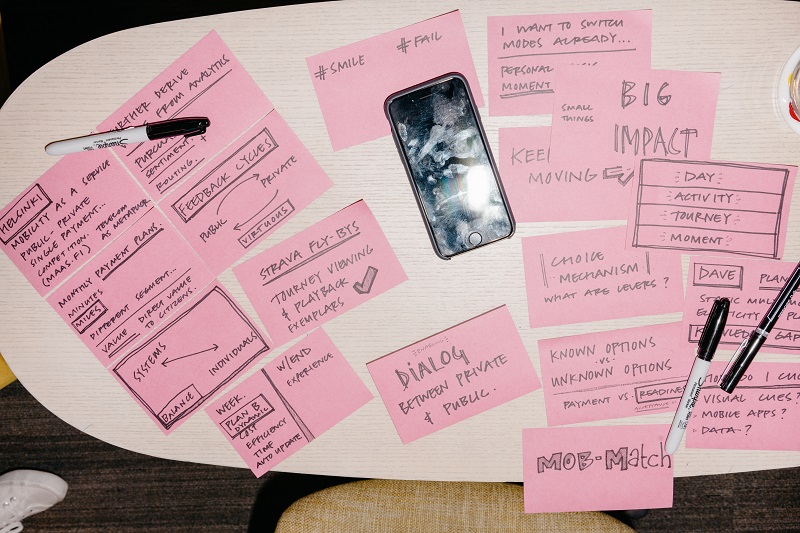 #SMILE #FAIL
I WANT TO SWITCH
MODES ALREADY...
PERSONAL
MOMENT
BIG
SMALL
THINGS
IMPACT
KEEP
MOVING
DAY
ACTIVITY
JOURNEY
MOMENT
FURTHER DERIVE
FROM ANALYTICS
SENTIMENT
ROUTING.
FEEDBACK CYCLES
PRIVATE
PUBLIC
VIRTUOUS
HELSINKI
MOBILITY AS A SERVICE
PUBLIC-PRIVATE
SINGLE PAYMENT...
COMPETITION. TELECOM
(MAAS.FI) AS METAPHOR
MONTHLY PAYMENT PLANS.
MINUTES
MILES
DIFFERENT SEGMENT...
VALUE DIRECT VALUE
TO CITIZENS.
SYSTEMS
INDIVIDUALS
BALANCE
STRAVA FLY-BYS
JOURNEY VIEWING
& PLAYBACK
EXEMPLARS
WEEK. W/END
EXPERIENCE.
PLAN B
DYNAMIC
COST
EFFICIENCY
TIME
AUTO UPDATE
DIALOG
BETWEEN PRIVATE
& PUBLIC.
CHOICE
MECHANISM
WHAT ARE LEVERS?
DAVE
GAP
KNOWN OPTIONS
VS.
UNKNOWN OPTIONS
PAYMENT VS.
VISUAL CUES?
MOBILE APPS?
DATA-?
MOB-MATCH
Sharpie